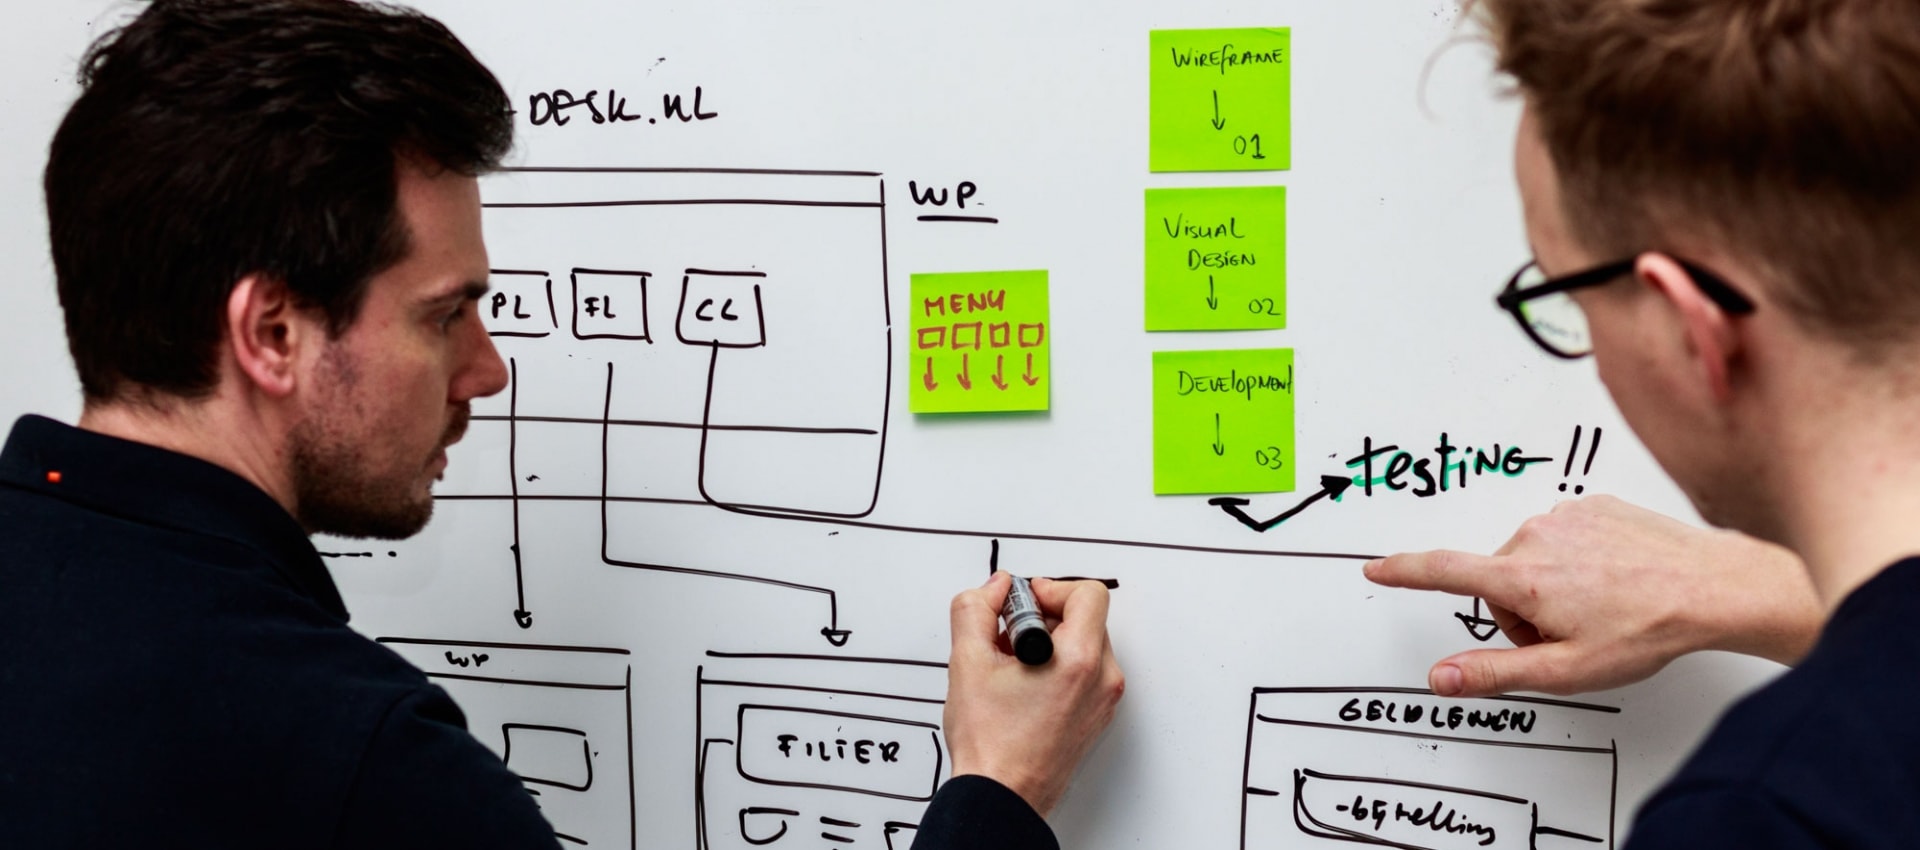 DESK.NL
WP.
PL
FL
CL
MENU
WIREFRAME
01
VISUAL
DESIGN
02
DEVELOPMENT
03
testING !!
WP
FILTER
GELDLENEN